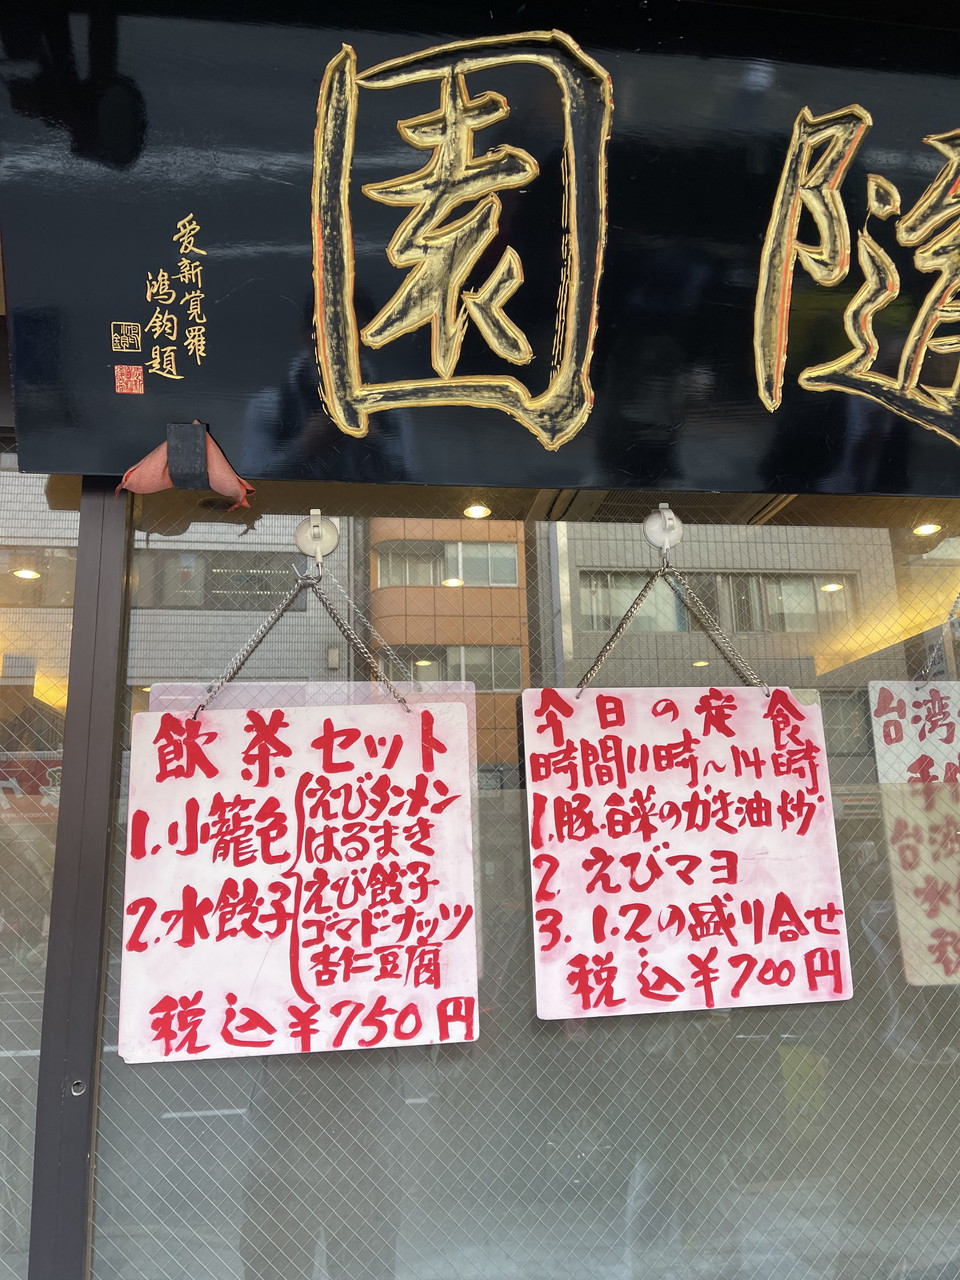 隨園
愛新覚羅
鴻鈞題
飲茶セット
1.小籠包
2.水餃子
えびタンメン
はるまき
えび餃子
ゴマドーナッツ
杏仁豆腐
税込¥750円
今日の定食
時間11時～14時
1.豚.白菜のかき油炒
2 えびマヨ
3. 1.2の盛り合せ
税込¥700円
台湾
台湾
水
税